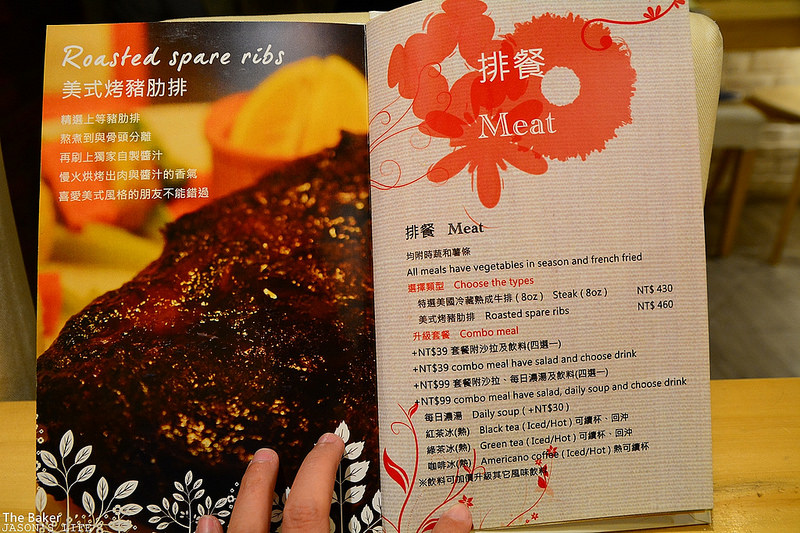 Roasted spare ribs
美式烤豬肋排
精選上等豬肋排
熬煮到與骨頭分離
再刷上獨家自製醬汁
慢火烘烤出肉與醬汁的香氣
喜愛美式風格的朋友不能錯過
排餐
Meat
排餐 Meat
均附時蔬和薯條
All meals have vegetables in season and french fried
選擇類型 Choose the types
特選美國冷藏熟成牛排 ( 8oz ) Steak ( 8oz ) NT$ 430
美式烤豬肋排 Roasted spare ribs NT$ 460
升級套餐 Combo meal
+NT$39 套餐附沙拉及飲料(四選一)
+NT$39 combo meal have salad and choose drink
+NT$99 套餐附沙拉、每日濃湯及飲料(四選一)
+NT$99 combo meal have salad, daily soup and choose drink
每日濃湯 Daily soup ( +NT$30 )
紅茶冰(熱) Black tea ( Iced/Hot ) 可續杯、回沖
綠茶冰(熱) Green tea ( Iced/Hot ) 可續杯、回沖
咖啡冰(熱) Americano coffee ( Iced/Hot ) 熱可續杯
※飲料可加價升級其它風味飲料
The Baker
JASON'S LIFE